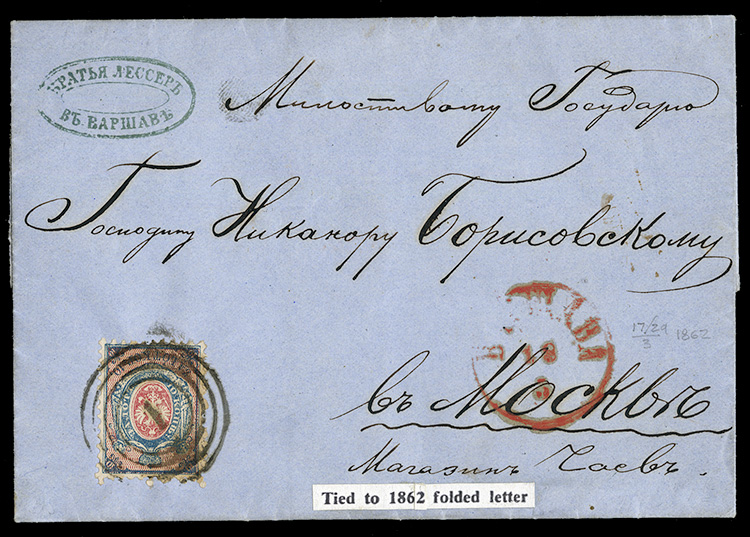 БРАТЬЯ ЛЕССЕРЪ
ВЪ ВАРШАВѢ
Милостивому Государю
Господину Никанору Борисовскому
17/29
3
1862
18
въ Москвѣ
Магазинъ Чаевъ.
1
Tied to 1862 folded letter